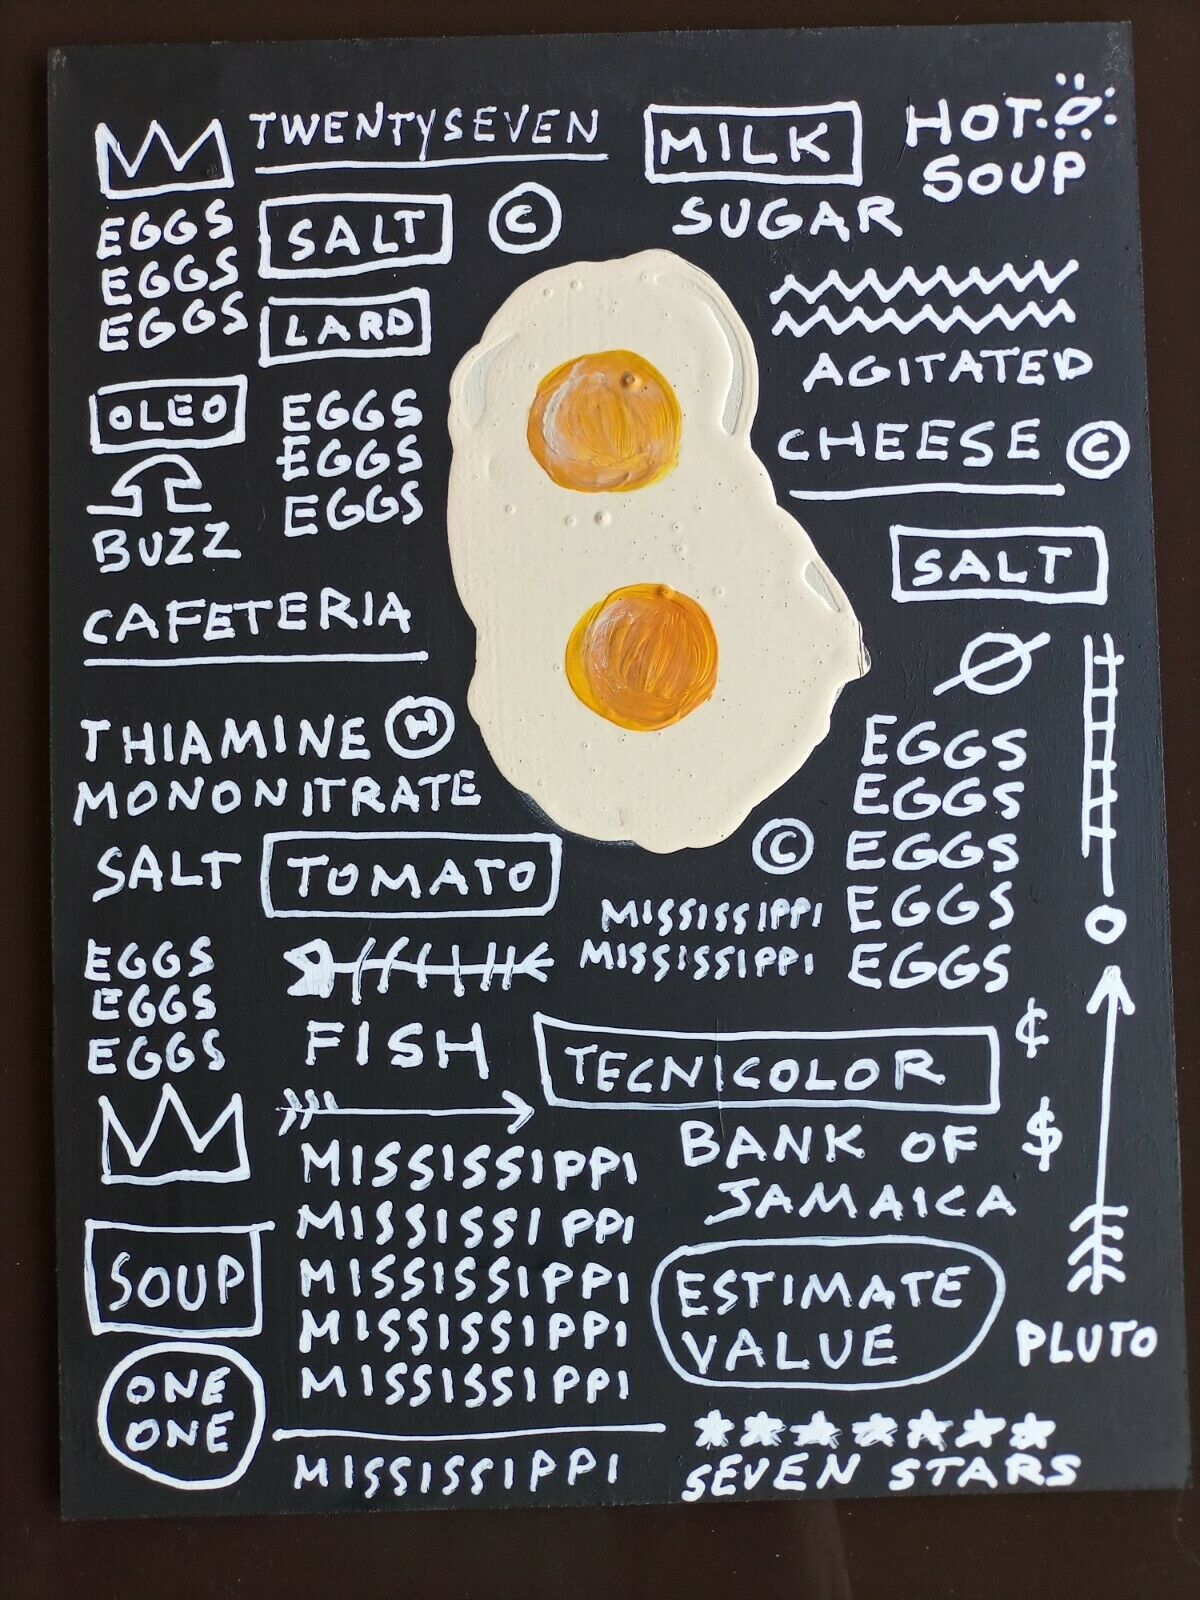 TWENTYSEVEN
MILK
HOT
SOUP
SUGAR
EGGS
EGGS
EGGS
SALT
©
LARD
AGITATED
OLEO
EGGS
EGGS
EGGS
CHEESE ©
BUZZ
SALT
CAFETERIA
Ø
THIAMINE Ⓗ
MONONITRATE
EGGS
EGGS
EGGS
EGGS
EGGS
SALT
TOMATO
©
MISSISSIPPI
MISSISSIPPI
EGGS
EGGS
EGGS
FISH
TECNICOLOR
¢
$
BANK OF
JAMAICA
MISSISSIPPI
MISSISSIPPI
MISSISSIPPI
MISSISSIPPI
MISSISSIPPI
SOUP
ESTIMATE
VALUE
PLUTO
ONE
ONE
MISSISSIPPI
SEVEN STARS